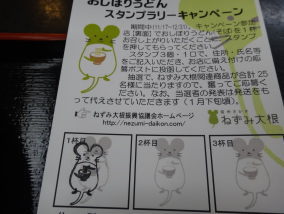 おしぼりうどん
スタンプラリーキャンペーン
期間中(11/17-12/31)、キャンペーン参加
店(裏面)でおしぼりうどん・そばを1杯
お召し上がりいただくごとに、スタンプ
を押してもらってください。
スタンプ3個・1口で、住所・氏名等
をご記入いただき、お店に備え付けの応
募ポストに投函してください。
抽選で、ねずみ大根関連商品が合計25
名様に当たりますので、奮ってご応募く
ださい。なお、当選者の発表は発送をもっ
て代えさせていただきます(1月下旬頃)。
ねずみ大根振興協議会ホームページ
http://nezumi-daikon.com/
ねずみ大根
1杯目
2杯目
3杯目